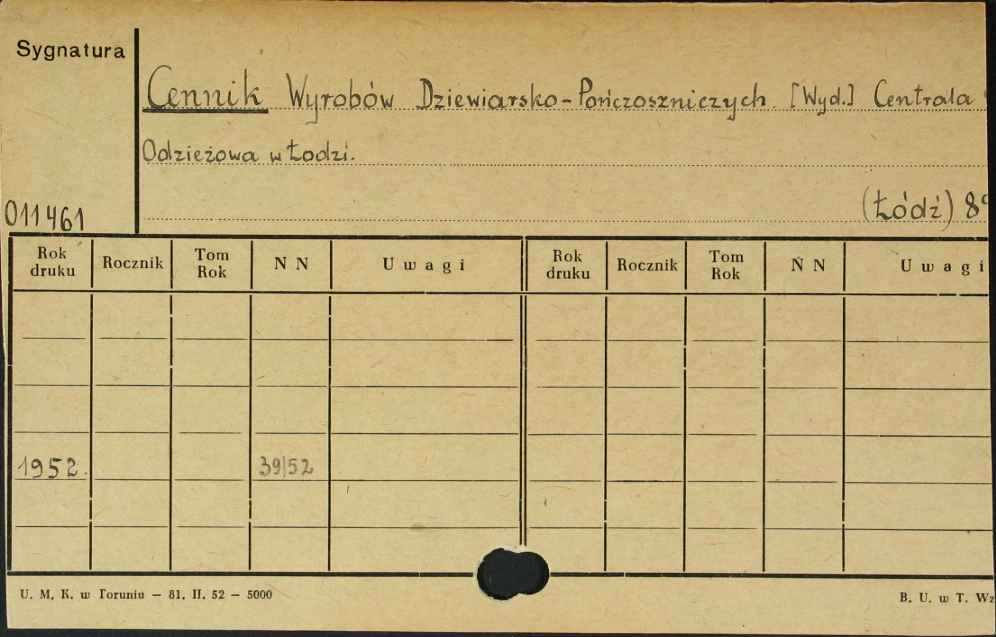 Sygnatura
Cennik Wyrobów Dziewiarsko-Pończoszniczych. [Wyd.] Centrala
Odzieżowa w Łodzi.
011461
(Łódź) 8°
Rok druku Rocznik Tom Rok N N Uwagi Rok druku Rocznik Tom Rok N N Uwagi
1952. 39/52
U. M. K. w Toruniu — 81. II. 52 — 5000
B. U. w T. Wz